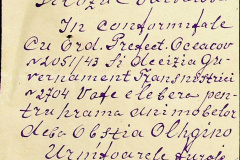 In conformitate
cu Ord. Prefect. Oceacov
№ 1051/43 Si Decizia Gu-
vernament Transnistriei
№ 2704 Vafe elebera pen-
tru prama animobelor
dela Obstia Olhgino
Urmtoarele